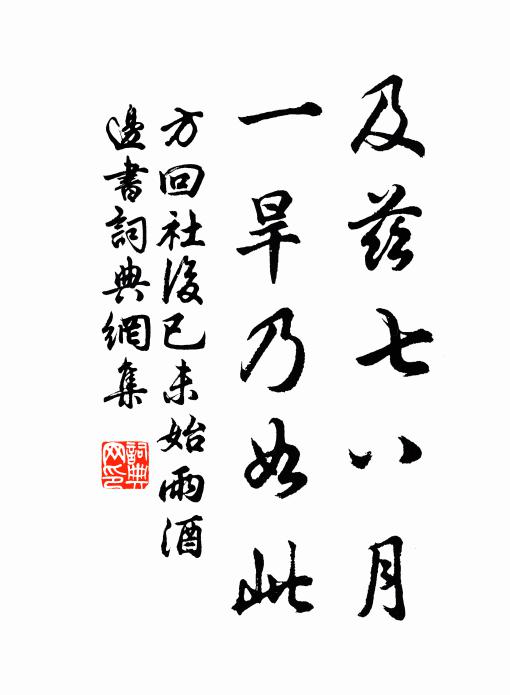 及茲七八月
一旱乃如此
方回社後已未始雨酒
邊書詞典網集
詞典網印